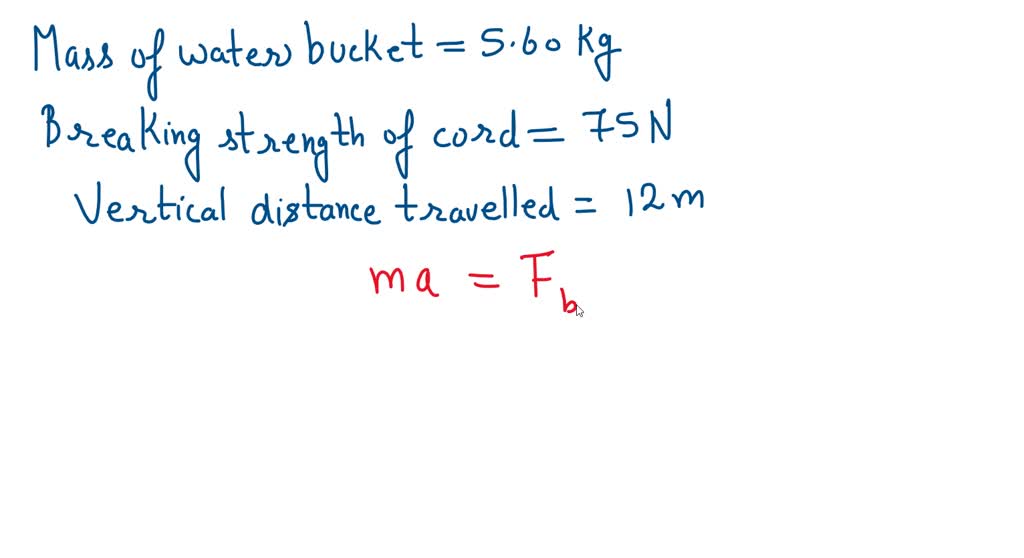 Mass of water bucket = 5.60 Kg
Breaking strength of cord = 75N
Vertical distance travelled = 12m
ma = F_b